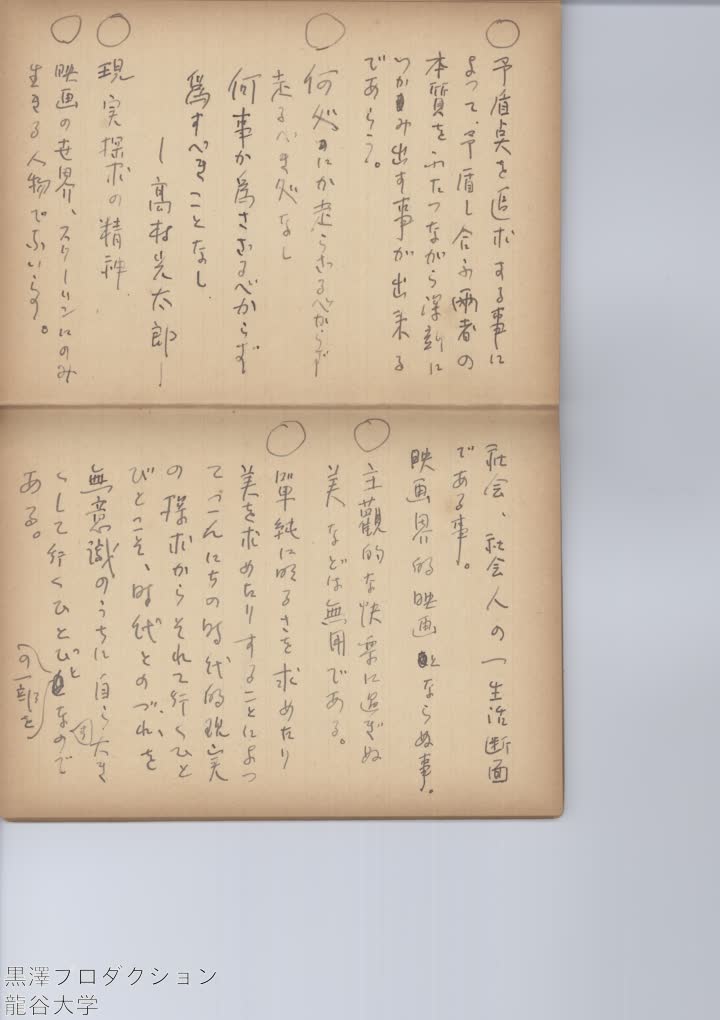 矛盾点を追求する事に
よって、矛盾し合ふ両者の
本質をふたつながら深刻に
つかみ出す事が出来る
であらう。
何処にか走らざるべからず
走るべき処なし
何事か為さざるべからず
為すべきことなし
―高村光太郎―
現実探求の精神
映画の世界、スクリーンにのみ
生きる人物でない
社会、社会人の一生活断面
である事。
映画界的映画とならぬ事。
主観的な快楽に過ぎぬ
美などは無用である。
単純に明るさを求めたり
美を求めたりすることによつ
てこんにちの時代的現実
の探求からそれて行くひと
びとこそ、時代とのづれを
無意識のうちに自ら大き
くして行くひとびとなので
ある。
の一部を
黒澤プロダクション
龍谷大学